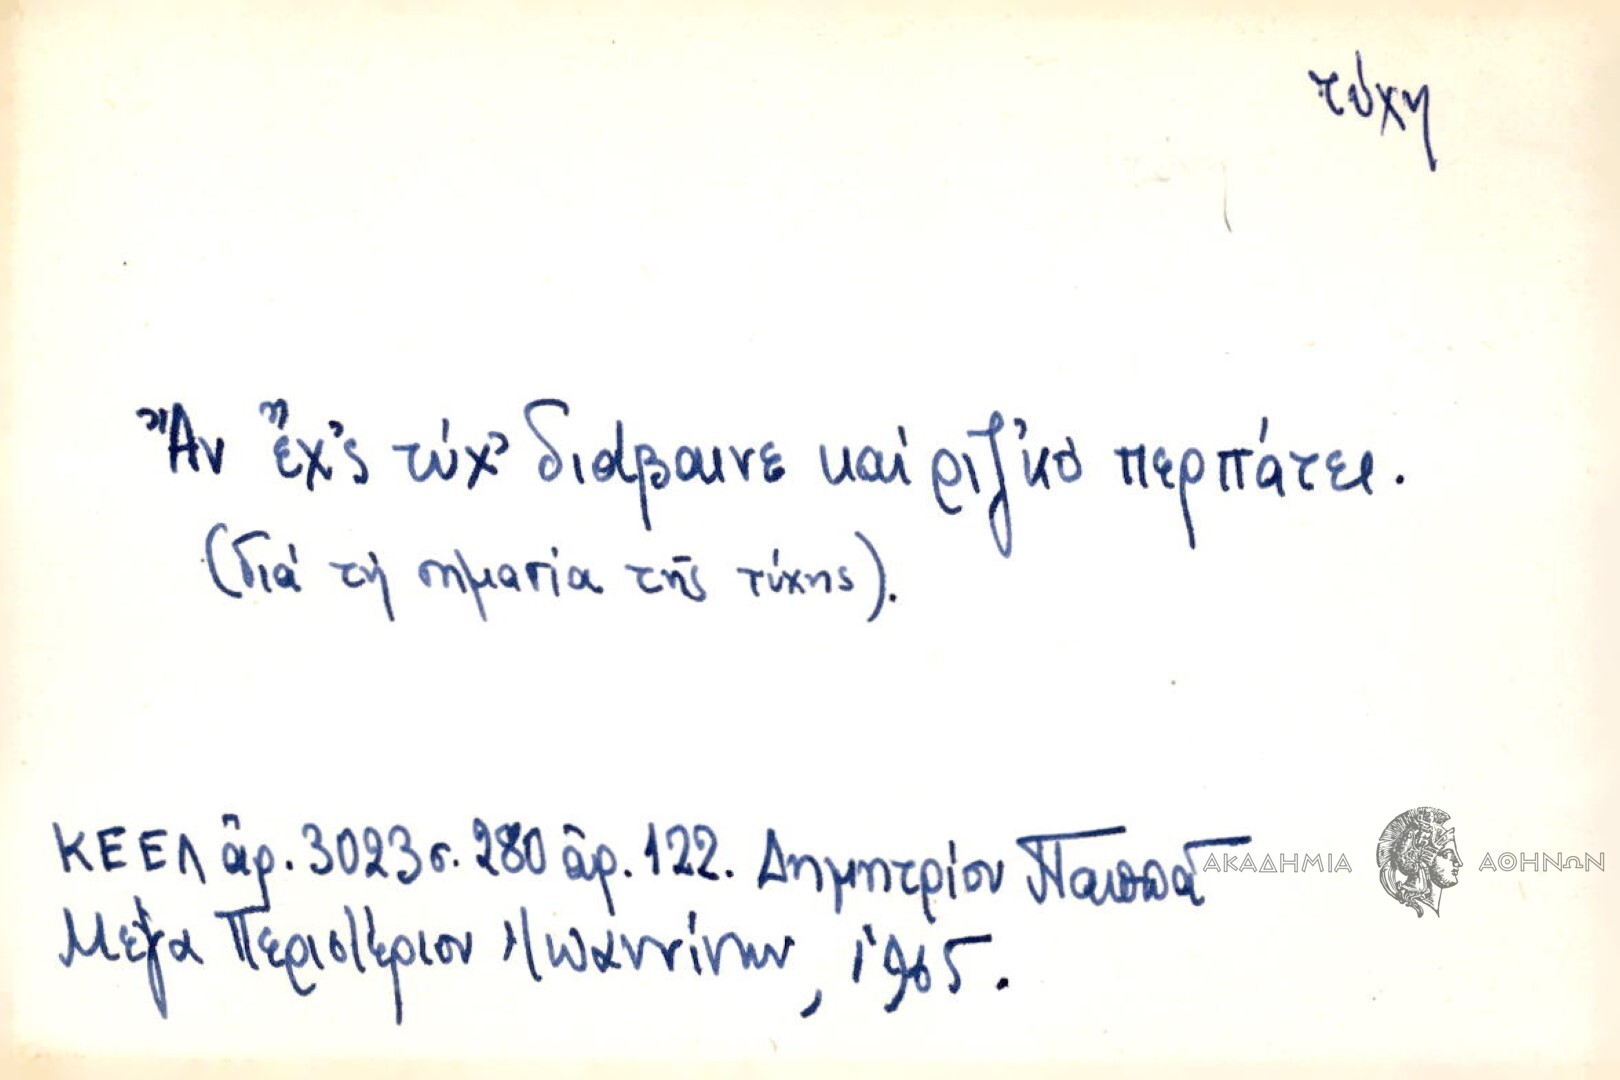 τύχη
Ἄν ἔχ'ς τύχ' διάβαινε καί ριζ'κό περπάτει.
(διά τή σημασία τῆς τύχης).
ΚΕΕΛ ἀρ. 3023 σ. 280 ἀρ. 122. Δημητρίου Παππᾶ
Μέγα Περιστέριον Ἰωαννίνων, 1965.
ΑΚΑΔΗΜΙΑ ΑΘΗΝΩΝ